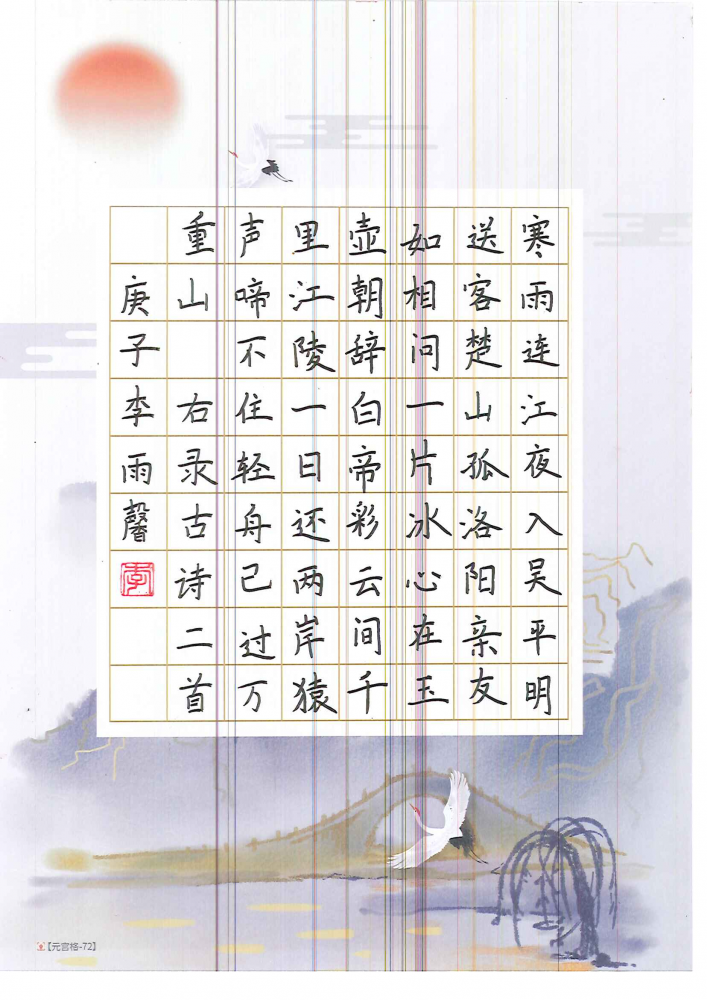 寒雨连江夜入吴平明
送客楚山孤洛阳亲友
如相问一片冰心在玉
壶朝辞白帝彩云间千
里江陵一日还两岸猿
声啼不住轻舟已过万
重山 右录古诗二首
庚子李雨馨
李
【元宫格-72】